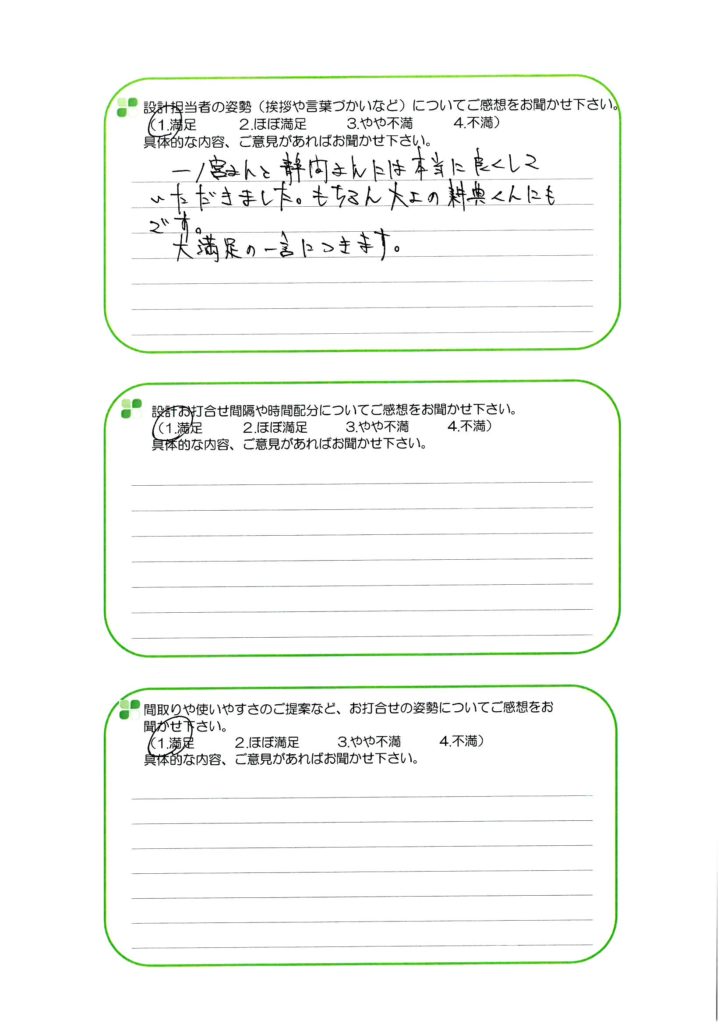 設計担当者の姿勢（挨拶や言葉づかいなど）についてご感想をお聞かせ下さい。
（1.満足　2.ほぼ満足　3.やや不満　4.不満）
具体的な内容、ご意見があればお聞かせ下さい。
一ノ宮さんと静間さんには本当に良くして
いただきました。もちろん大工の耕典くんにも
です。
大満足の一言につきます。
設計お打合せ間隔や時間配分についてご感想をお聞かせ下さい。
（1.満足　2.ほぼ満足　3.やや不満　4.不満）
具体的な内容、ご意見があればお聞かせ下さい。
間取りや使いやすさのご提案など、お打合せの姿勢についてご感想をお
聞かせ下さい。
（1.満足　2.ほぼ満足　3.やや不満　4.不満）
具体的な内容、ご意見があればお聞かせ下さい。